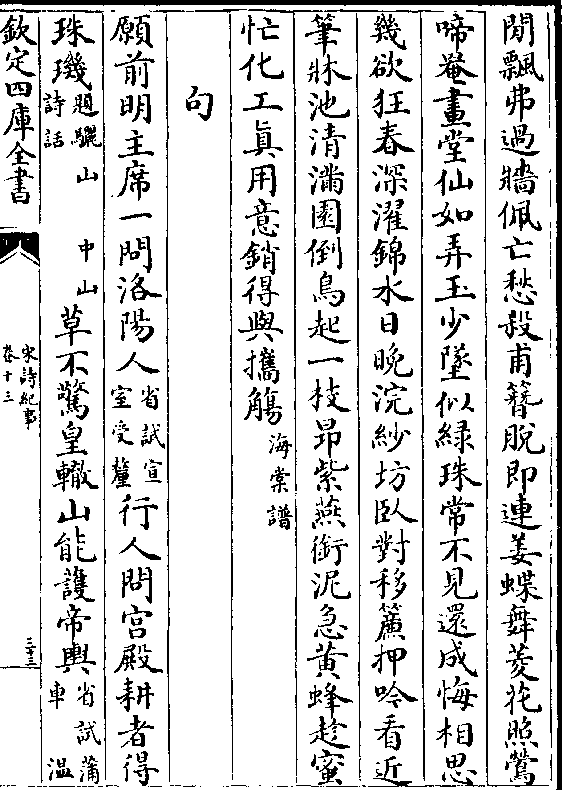 閒飄弗過牆佩亡愁殺甫簪脫即連姜蝶舞菱花照鶯
啼罨畫堂仙如弄玉少墜似緑珠常不見還成悔相思
幾欲狂春深濯錦水日晚浣紗坊臥對移簾押吟看近
筆牀池清滿園倒鳥起一枝昂紫燕銜泥急黄蜂趁蜜
忙化工眞用意銷得與攜觴海棠譜
句
願前明主席一問洛陽人省試宣室受釐行人問宫殿耕者得
珠璣題驪山中山詩話草不驚皇轍山能護帝輿省試蒲車溫
欽定四庫全書
宋詩紀事
卷十三
二十三